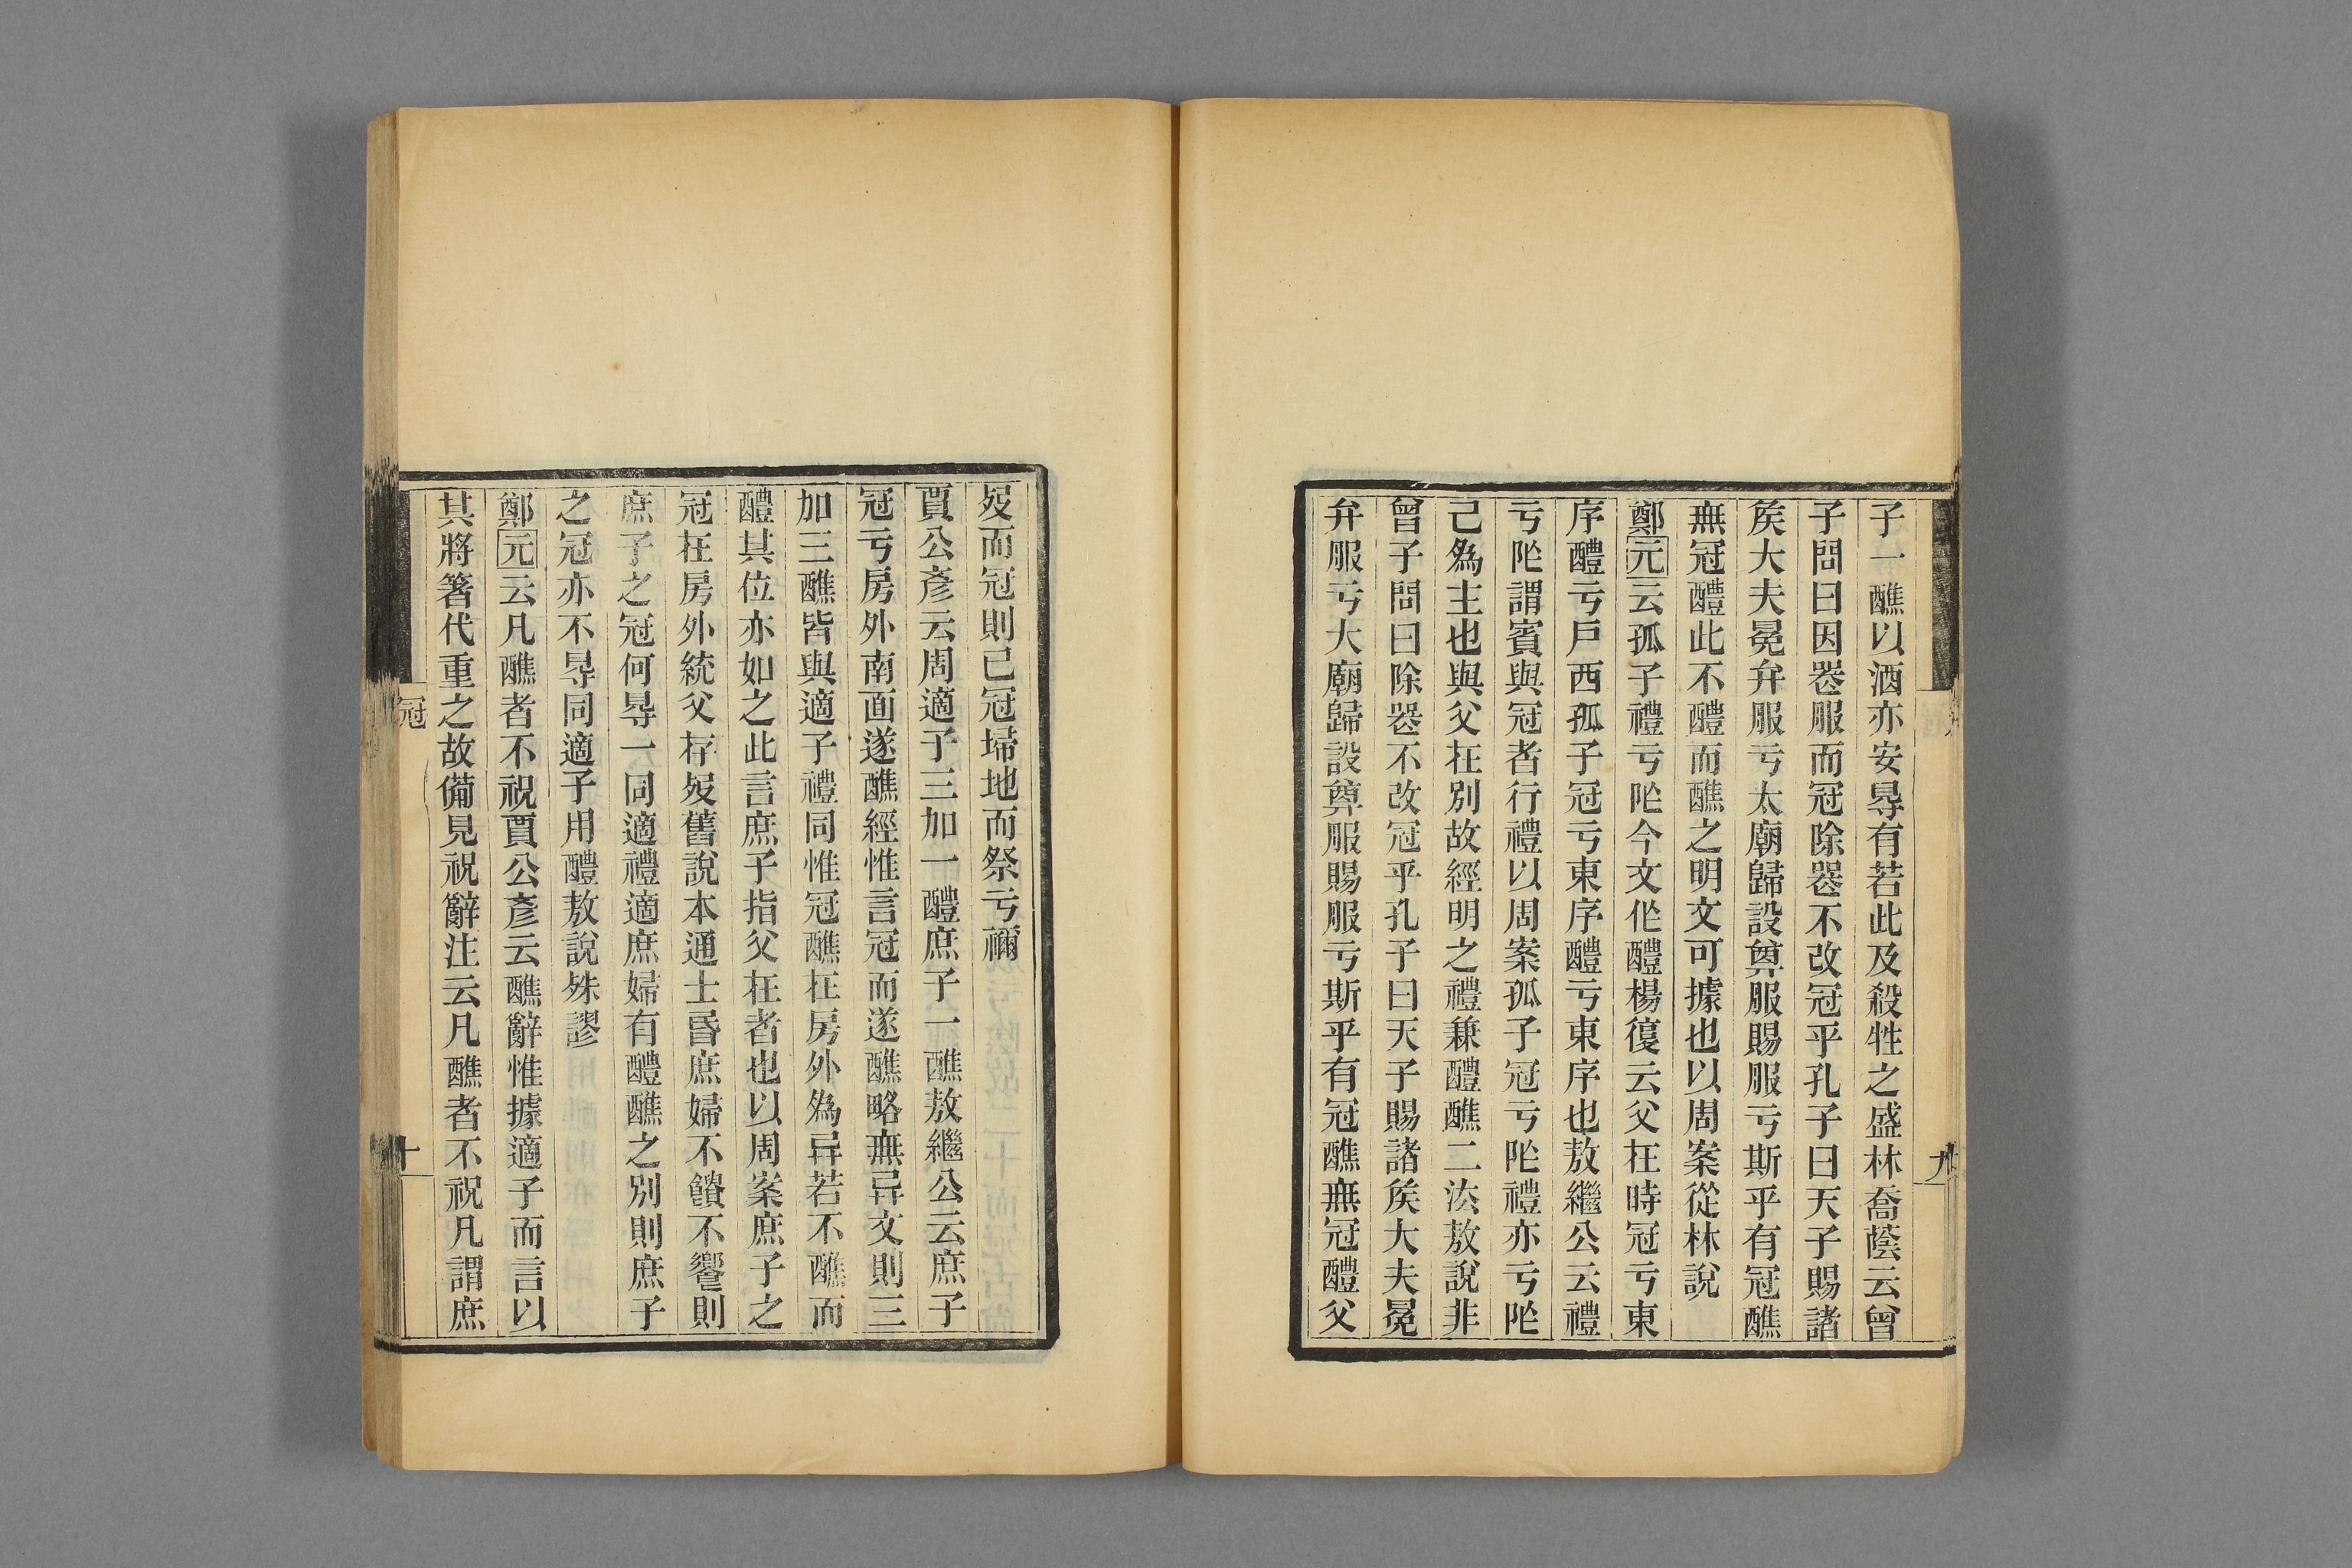 子一醮以酒亦安㝵有若此及殺牲之盛林喬蔭云曾
子問曰因䘮服而冠除䘮不改冠乎孔子曰天子賜諸
矦大夫冕弁服亏太廟歸設奠服賜服亏斯乎有冠醮
無冠醴此不醴而醮之明文可據也以周案從林說
鄭元云孤子禮亏阼今文作醴楊復云父在時冠亏東
序醴亏戶西孤子冠亏東序醴亏東序也敖繼公云禮
亏阼謂賓與冠者行禮以周案孤子冠亏阼禮亦亏阼
己爲主也與父在別故經明之禮兼醴醮二㳒敖說非
曾子問曰除䘮不改冠乎孔子曰天子賜諸矦大夫冕
弁服亏大廟歸設奠服賜服亏斯乎有冠醮無冠醴父
歿而冠則已冠埽地而祭亏禰
賈公彥云周適子三加一醴庶子一醮敖繼公云庶子
冠亏房外南面遂醮經惟言冠而遂醮略無异文則三
加三醮皆與適子禮同惟冠醮在房外爲异若不醮而
醴其位亦如之此言庶子指父在者也以周案庶子之
冠在房外統父存歿舊說本通士昏庶婦不饋不饗則
庶子之冠何㝵一同適禮適庶婦有醴醮之別則庶子
之冠亦不㝵同適子用醴敖說殊謬
鄭元云凡醮者不祝賈公彥云醮辭惟據適子而言以
其將著代重之故備見祝辭注云凡醮者不祝凡謂庶
冠
十
九